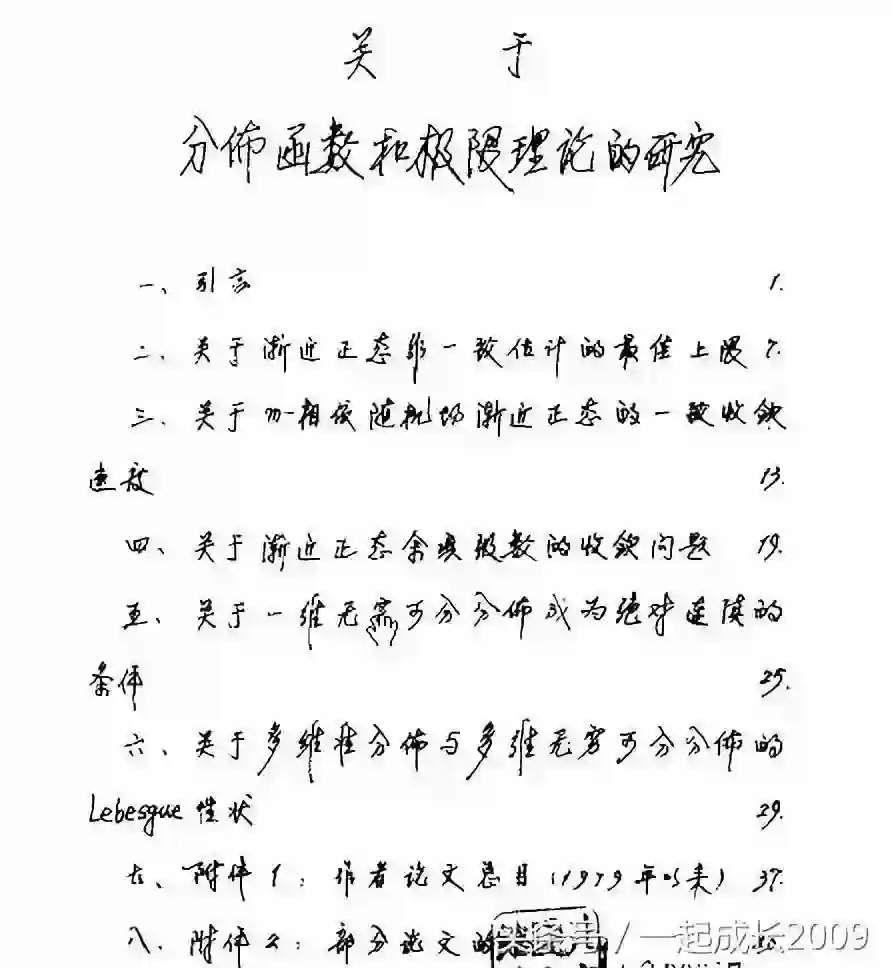 关 于
分佈函数和极限理论的研究
一、引言 1.
二、关于渐近正态非一致估计的最佳上限 7.
三、关于m-相依随机场渐近正态的一致收敛
速度 13.
四、关于渐近正态余项级数的收敛问题 19.
五、关于一维无穷可分分佈成为绝对连续的
条件 25.
六、关于多维准分佈与多维无穷可分分佈的
Lebesgue 性状 29.
七、附件1：作者论文总目(1979年以来) 37.
八、附件2：部分论文的
头条号 / 一起成长2009